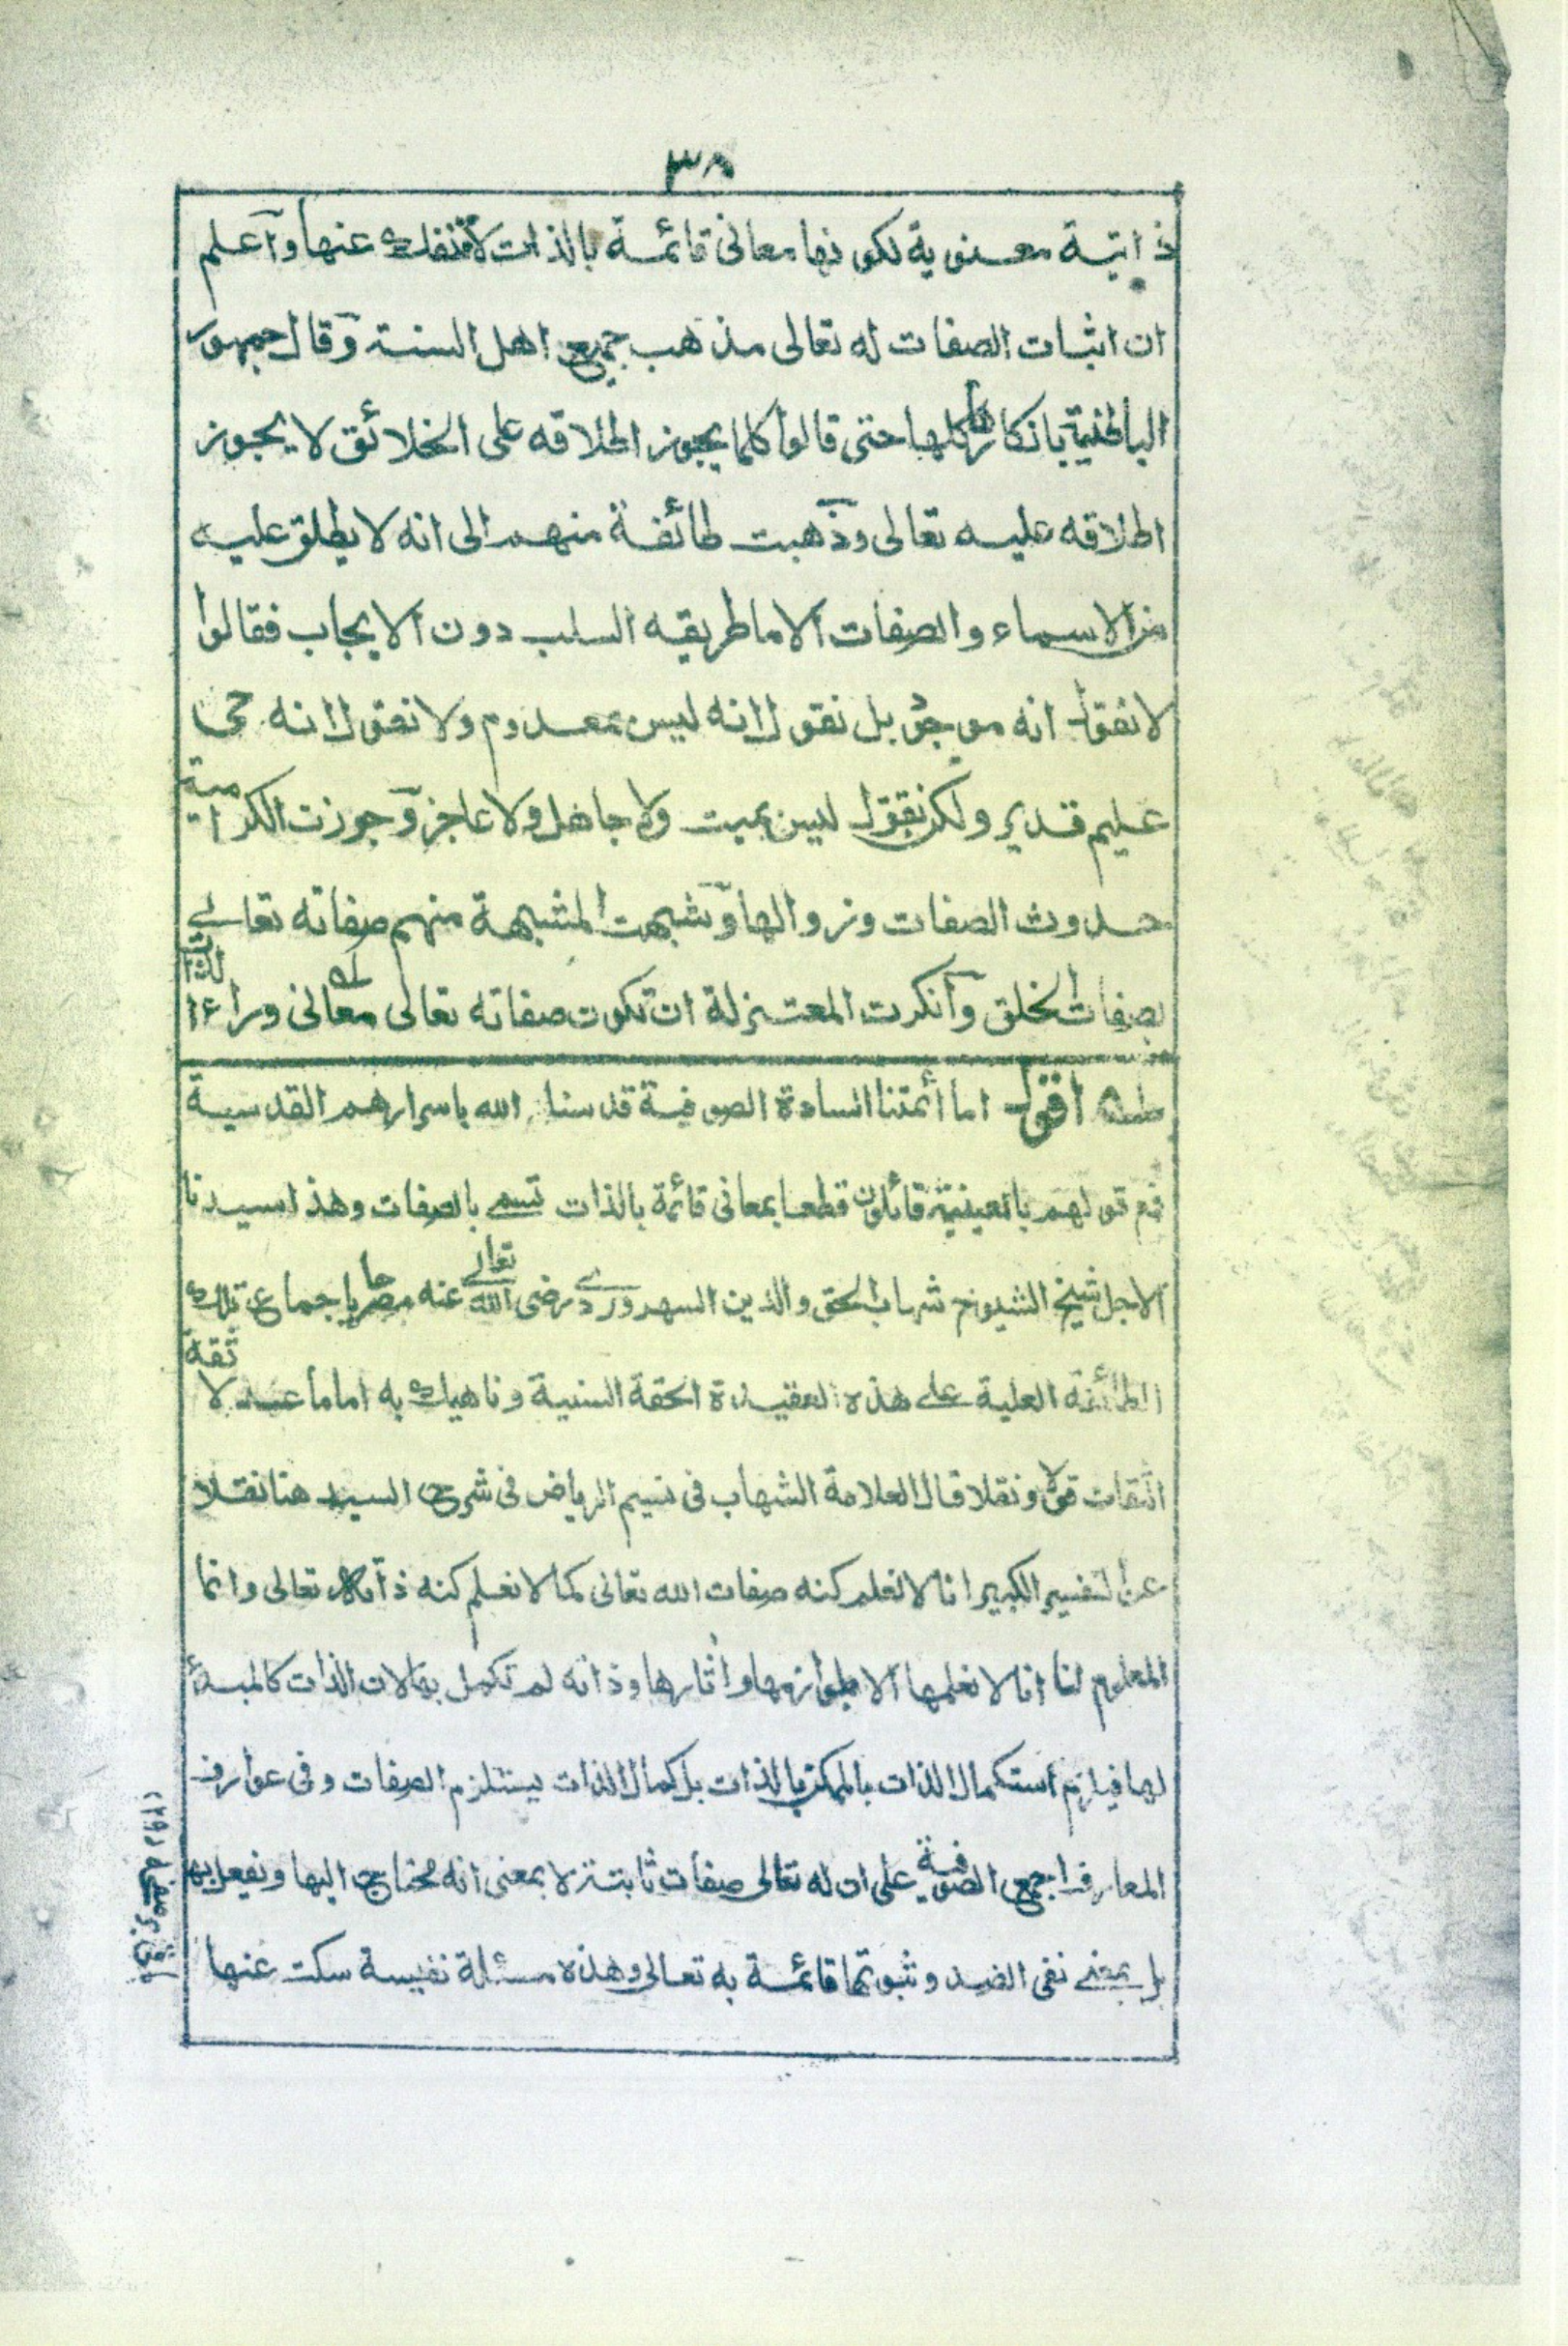 ٣٨
ذاتية معنوية لكونها معانى قائمة بالذات لا منفكة عنها وآعلم
ان اثبات الصفات له تعالى مذهب جميع اهل السنة وقال جمهور
الباطنية بانكارها كلها حتى قالوا كلما يجوز اطلاقه على الخلائق لا يجوز
اطلاقه عليه تعالى وذهبت طائفة منهم الى انه لا يطلق عليه
من الاسماء والصفات الا ما طريقه السلب دون الايجاب فقالوا
لا نقول انه موجود بل نقول انه ليس بمعدوم ولا نقول انه حى
عليم قدير ولكن نقول ليس بميت ولا جاهل ولا عاجز وجوزت الكرامية
حدوث الصفات وزوالها وشبهت المشبهة منهم صفاته تعالى
بصفات الخلق وآنكرت المعتزلة ان تكون صفاته تعالى معانى وراء الذات
اقول اما أئمتنا السادة الصوفية قدسنا الله باسرارهم القدسية
فمع قولهم بالعينية قائلون قطعا بمعانى قائمة بالذات تسمى بالصفات وهذا سيدنا
الاجل شيخ الشيوخ شهاب الحق والدين السهروردى رضى الله تعالى عنه مصرحا باجماع تلك
الطائفة العلية على هذه العقيدة الحقة السنية وناهيك به اماما عدلا ثقة
الثقات قولا ونقلا قال العلامة الشهاب فى نسيم الرياض فى شرح السيد هنا نقلا
عن التفسير الكبير انا لا نعلم كنه صفات الله تعالى كما لا نعلم كنه ذاته تعالى وانما
المعلوم لنا انا لا نعلمها الا بلوازمها واثارها وذاته لم تكمل بها لان الذات كالمبدأ
لها فيلزم استكمال الذات بالممكن بالذات بل كمال الذات يستلزم الصفات وفى عوارف
المعارف اجمع الصوفية على ان له تعالى صفات ثابتة لا بمعنى انه محتاج اليها ويفعل بها
بل بمعنى نفى الضد وثبوتها قائمة به تعالى وهذه مسئلة نفيسة سكت عنها